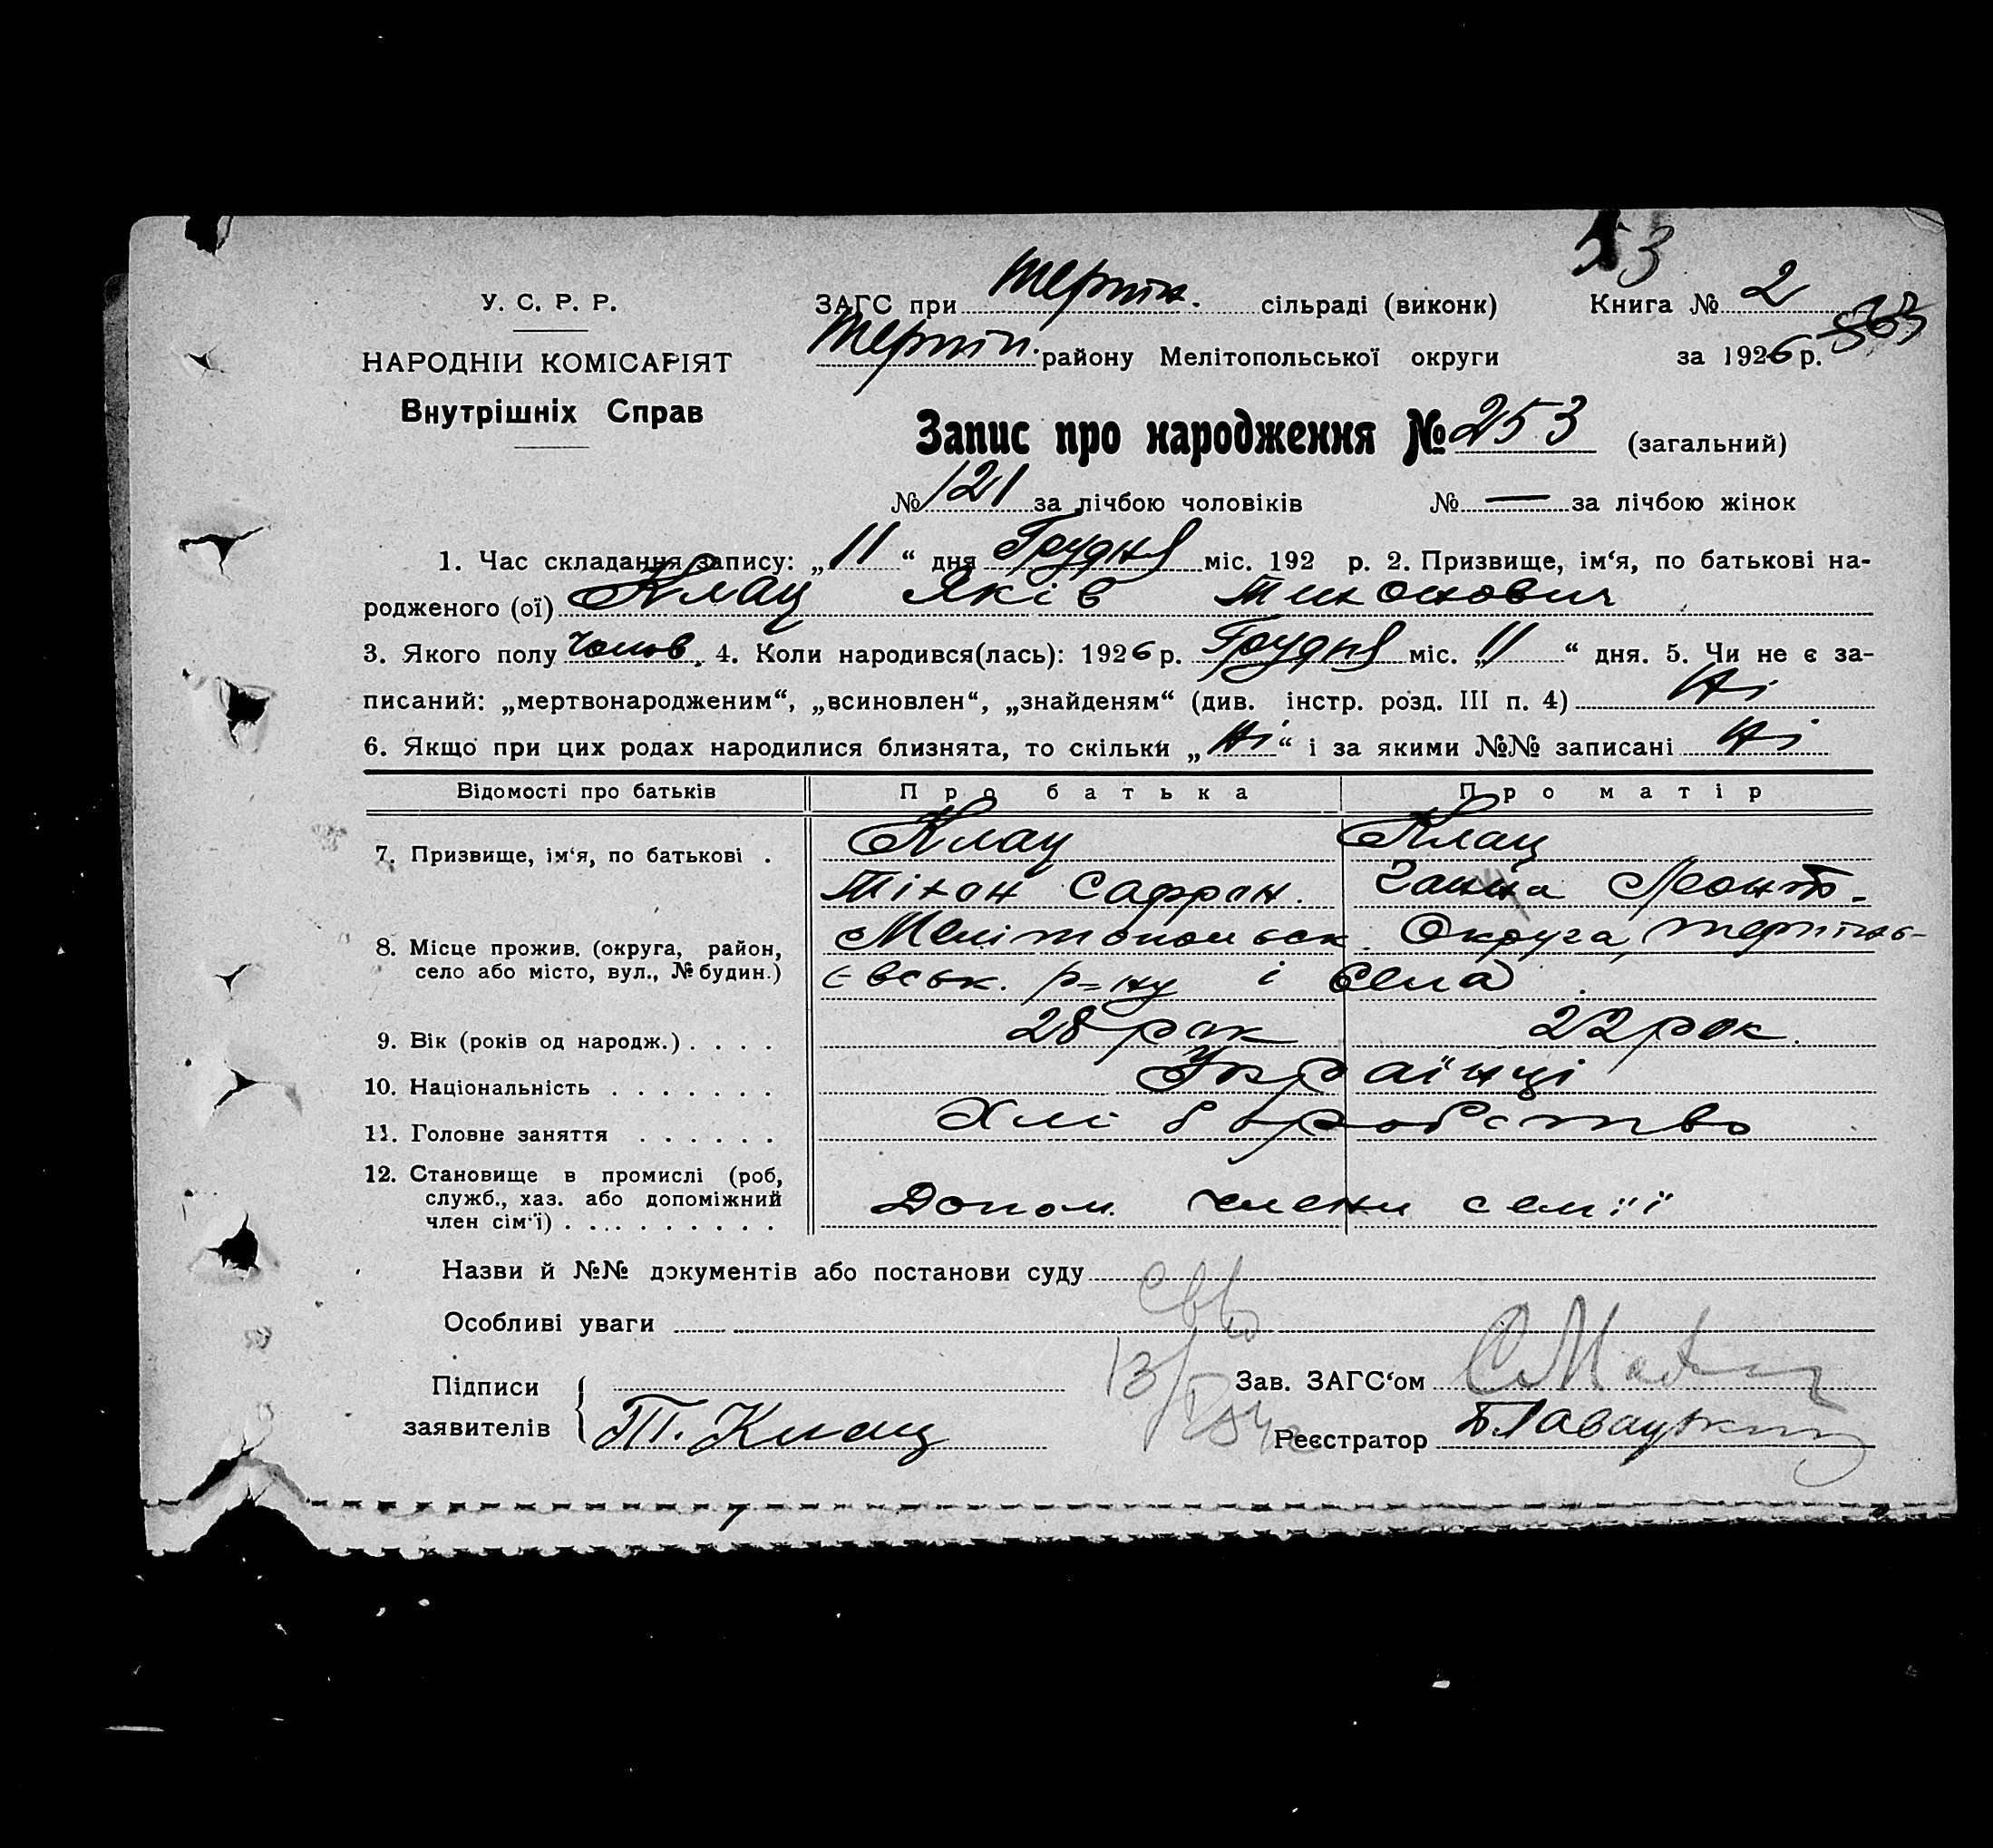 53
У. С. Р. Р.
ЗАГС при Терпін. сільраді (виконк) Книга № 2
НАРОДНІЙ КОМІСАРІЯТ
Терпін. району Мелітопольської округи за 1926 р.
Внутрішніх Справ
Запис про народження № 253 (загальний)
№ 121 за лічбою чоловіків № — за лічбою жінок
1. Час складання запису: „11“ дня Грудня міс. 192 р. 2. Призвище, ім‘я, по батькові на-
родженого (ої) Клац Яків Тихонович
3. Якого полу чолов. 4. Коли народився(лась): 1926 р. Грудня міс. „11“ дня. 5. Чи не є за-
писаний: „мертвонародженим“, „всиновлен“, „знайденям“ (див. інстр. розд. III п. 4) Ні
6. Якщо при цих родах народилися близнята, то скільки „Ні“ і за якими №№ записані Ні
Відомості про батьків Про батька Про матір
7. Призвище, ім‘я, по батькові . Клац Клац
Тіхон Сафрон. Ганна Леонт.
8. Місце прожив. (округа, район, Мелітопольськ. Округа, Терпінь-
село або місто, вул., № будин.) євськ. р=ну і села
9. Вік (років од народж.) . . . . 28 рок 22 рок.
10. Національність . . . . . . . Українці
11. Головне заняття . . . . . . Хліборобство
12. Становище в промислі (роб,
служб., хаз. або допоміжний Допом. члени семіі
член сім‘ї) . . . . . . . . . .
Назви й №№ документів або постанови суду
Особливі уваги
Підписи Зав. ЗАГС‘ом
заявителів Т. Клац Реєстратор